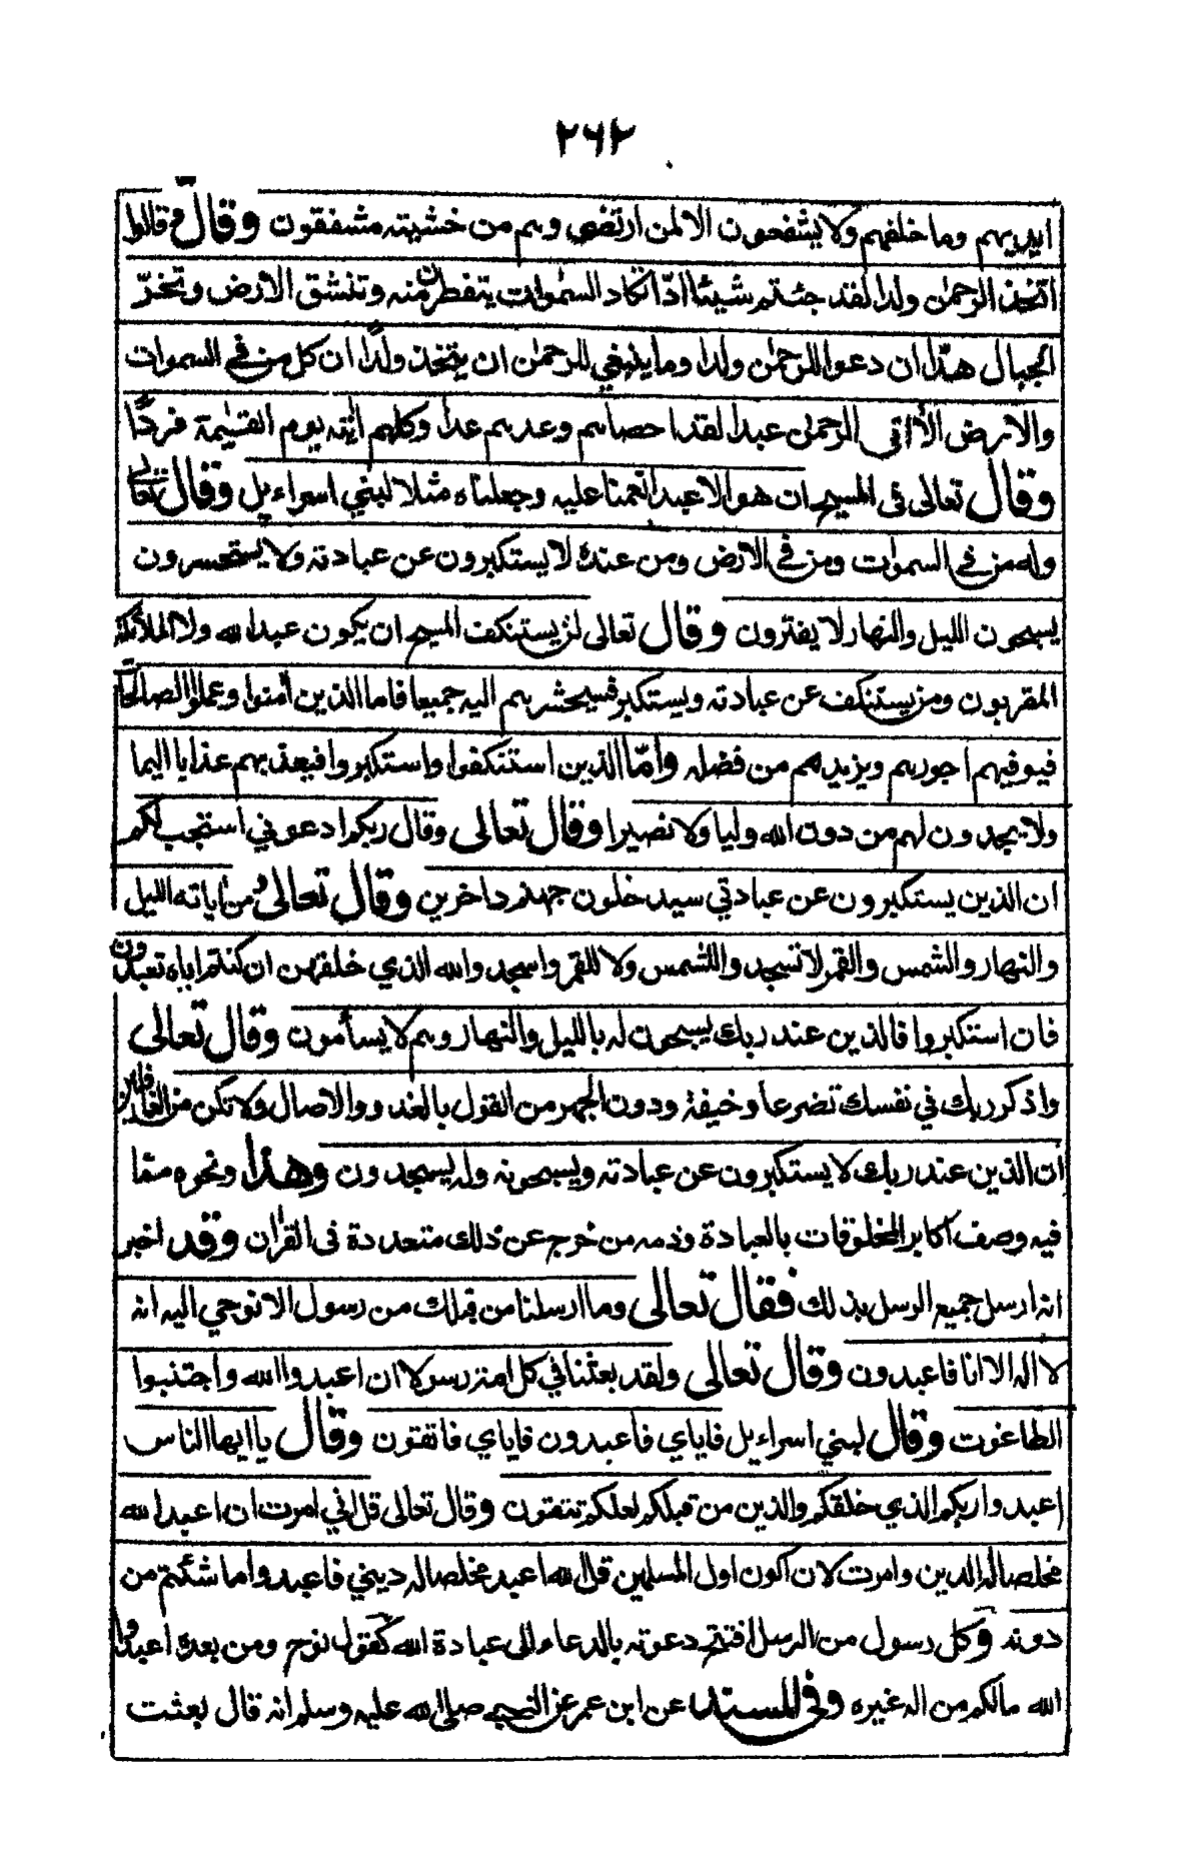 ٢٦٢
ايديهم وما خلفهم ولا يشفعون الا لمن ارتضى وهم من خشيته مشفقون وقال وقالوا
اتخذ الرحمٰن ولدا لقد جئتم شيئا ادّا تكاد السمٰوات يتفطرن منه وتنشق الارض وتخرّ
الجبال هدّا ان دعوا للرحمٰن ولدا وما ينبغي للرحمٰن ان يتخذ ولدًا ان كل من في السموات
والارض الّا اتى الرحمٰن عبدا لقد احصاهم وعدهم عدا وكلهم اٰتيه يوم القيٰمة فردًا
وقال تعالى في المسيح ان هو الا عبد انعمنا عليه وجعلناه مثلا لبني اسراءيل وقال تعالى
وله من في السمٰوات ومن في الارض ومن عنده لا يستكبرون عن عبادته ولا يستحسرون
يسبحون الليل والنهار لا يفترون وقال تعالى لن يستنكف المسيح ان يكون عبدا لله ولا الملائكة
المقربون ومن يستنكف عن عبادته ويستكبر فسيحشرهم اليه جميعا فاما الذين اٰمنوا وعملوا الصالحات
فيوفيهم اجورهم ويزيدهم من فضله وامّا الذين استنكفوا واستكبروا فيعذبهم عذابا اليما
ولا يجدون لهم من دون الله وليا ولا نصيرا وقال تعالى وقال ربكم ادعوني استجب لكم
ان الذين يستكبرون عن عبادتي سيدخلون جهنم داخرين وقال تعالى ومن اٰياته الليل
والنهار والشمس والقمر لا تسجدوا للشمس ولا للقمر واسجدوا لله الذي خلقهن ان كنتم اياه تعبدون
فان استكبروا فالذين عند ربك يسبحون له بالليل والنهار وهم لا يسأمون وقال تعالى
واذكر ربك في نفسك تضرعا وخيفة ودون الجهر من القول بالغدو والاصال ولا تكن من الغافلين
ان الذين عند ربك لا يستكبرون عن عبادته ويسبحونه وله يسجدون وهذا ونحوه مما
فيه وصف اكابر المخلوقات بالعبادة وذمه من خرج عن ذلك متعددة في القراٰن وقد اخبر
انه ارسل جميع الرسل بذلك فقال تعالى وما ارسلنا من قبلك من رسول الا نوحي اليه انه
لا اله الا انا فاعبدون وقال تعالى ولقد بعثنا في كل امة رسولا ان اعبدوا الله واجتنبوا
الطاغوت وقال لبني اسراءيل فاياي فاعبدون فاياي فاتقون وقال يا ايها الناس
اعبدوا ربكم الذي خلقكم والذين من قبلكم لعلكم تتقون وقال تعالى قل اني امرت ان اعبد الله
مخلصا له الدين وامرت لان اكون اول المسلمين قل الله اعبد مخلصا له ديني فاعبدوا ما شئتم من
دونه وكل رسول من الرسل افتتح دعوته بالدعاء الى عبادة الله كقول نوح ومن بعده اعبدوا
الله مالكم من اله غيره وفي المسند عن ابن عمر عن النبي صلى الله عليه وسلم انه قال بعثت